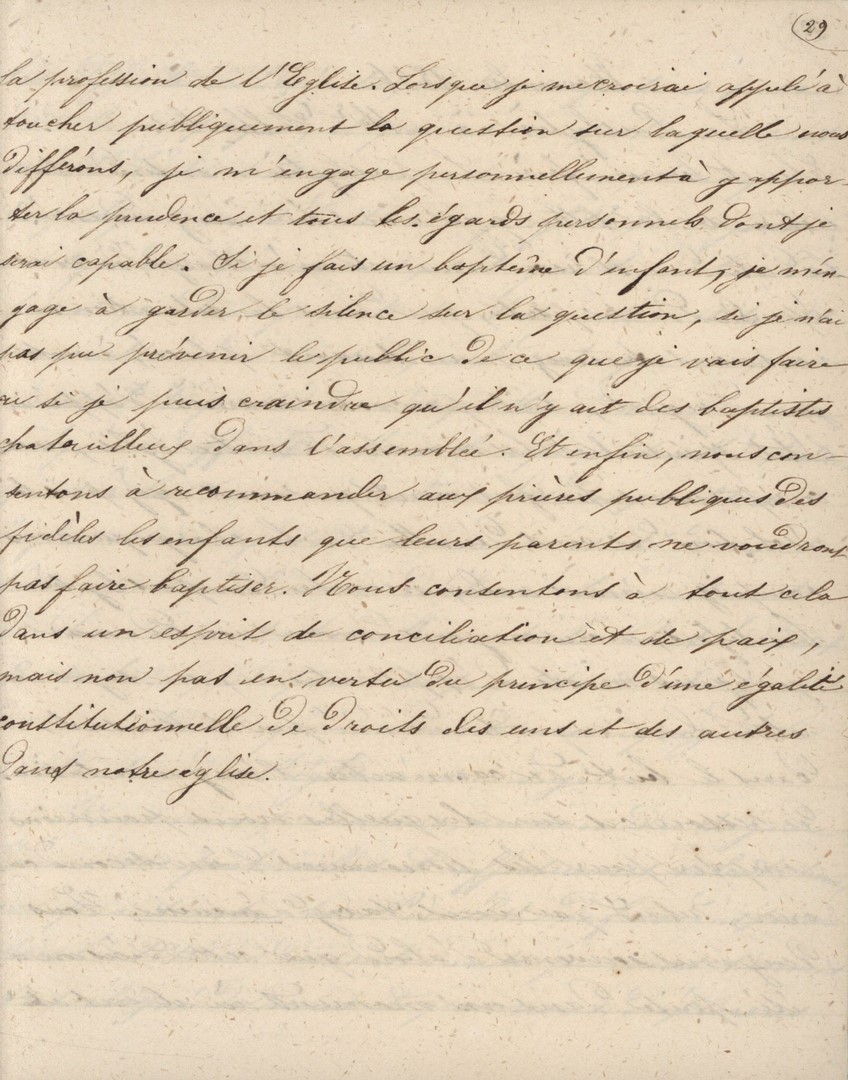 29
la profession de l'Eglise. Lorsque je me croirai appelé à
toucher publiquement la question sur laquelle nous
différons, je m'engage personnellement à y appor-
ter la prudence et tous les égards personnels dont je
serai capable. Si je fais un baptême d'enfant, je m'en-
gage à garder le silence sur la question, si je n'ai
pas pu prévenir le public de ce que je vais faire
ou si je puis craindre qu'il n'y ait des baptistes
chatouilleux dans l'assemblée. Et enfin, nous con-
sentons à recommander aux prières publiques des
fidèles les enfants que leurs parents ne voudront
pas faire baptiser. Nous consentons à tout cela
dans un esprit de conciliation et de paix,
mais non pas en vertu du principe d'une égalité
constitutionnelle de droits des uns et des autres
dans notre église.